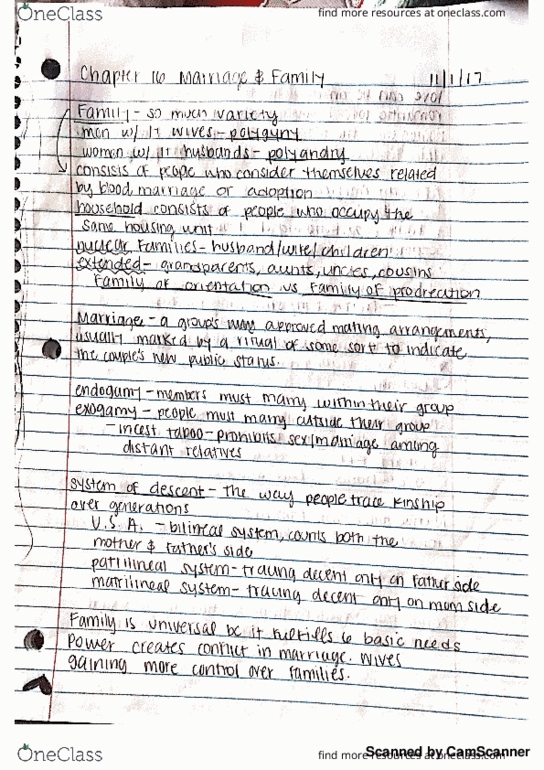 OneClass
find more resources at oneclass.com
Chapter 16 Marriage & Family 11/1/17
Family - so much variety
men w/ 1+ wives - polygyny
women w/ 1+ husbands - polyandry
consists of people who consider themselves related
by blood marriage or adoption
household consists of people who occupy the
same housing unit
nuclear families - husband/wife/children
extended - grandparents, aunts, uncles, cousins
Family of orientation vs Family of procreation
Marriage - a group's approved mating arrangements,
usually marked by a ritual of some sort to indicate
the couple's new public status.
endogamy - members must marry within their group
exogamy - people must marry outside their group
- incest taboo - prohibits sex/marriage among
distant relatives
system of descent - the way people trace kinship
over generations
U.S.A. - bilineal system, counts both the
mother & father's side
patrilineal system - tracing decent only on father side
matrilineal system - tracing decent only on mom side
Family is universal bc it fulfills 6 basic needs
Power creates conflict in marriage. Wives
gaining more control over families.
OneClass
find more resources at oneclass.com
Scanned by CamScanner